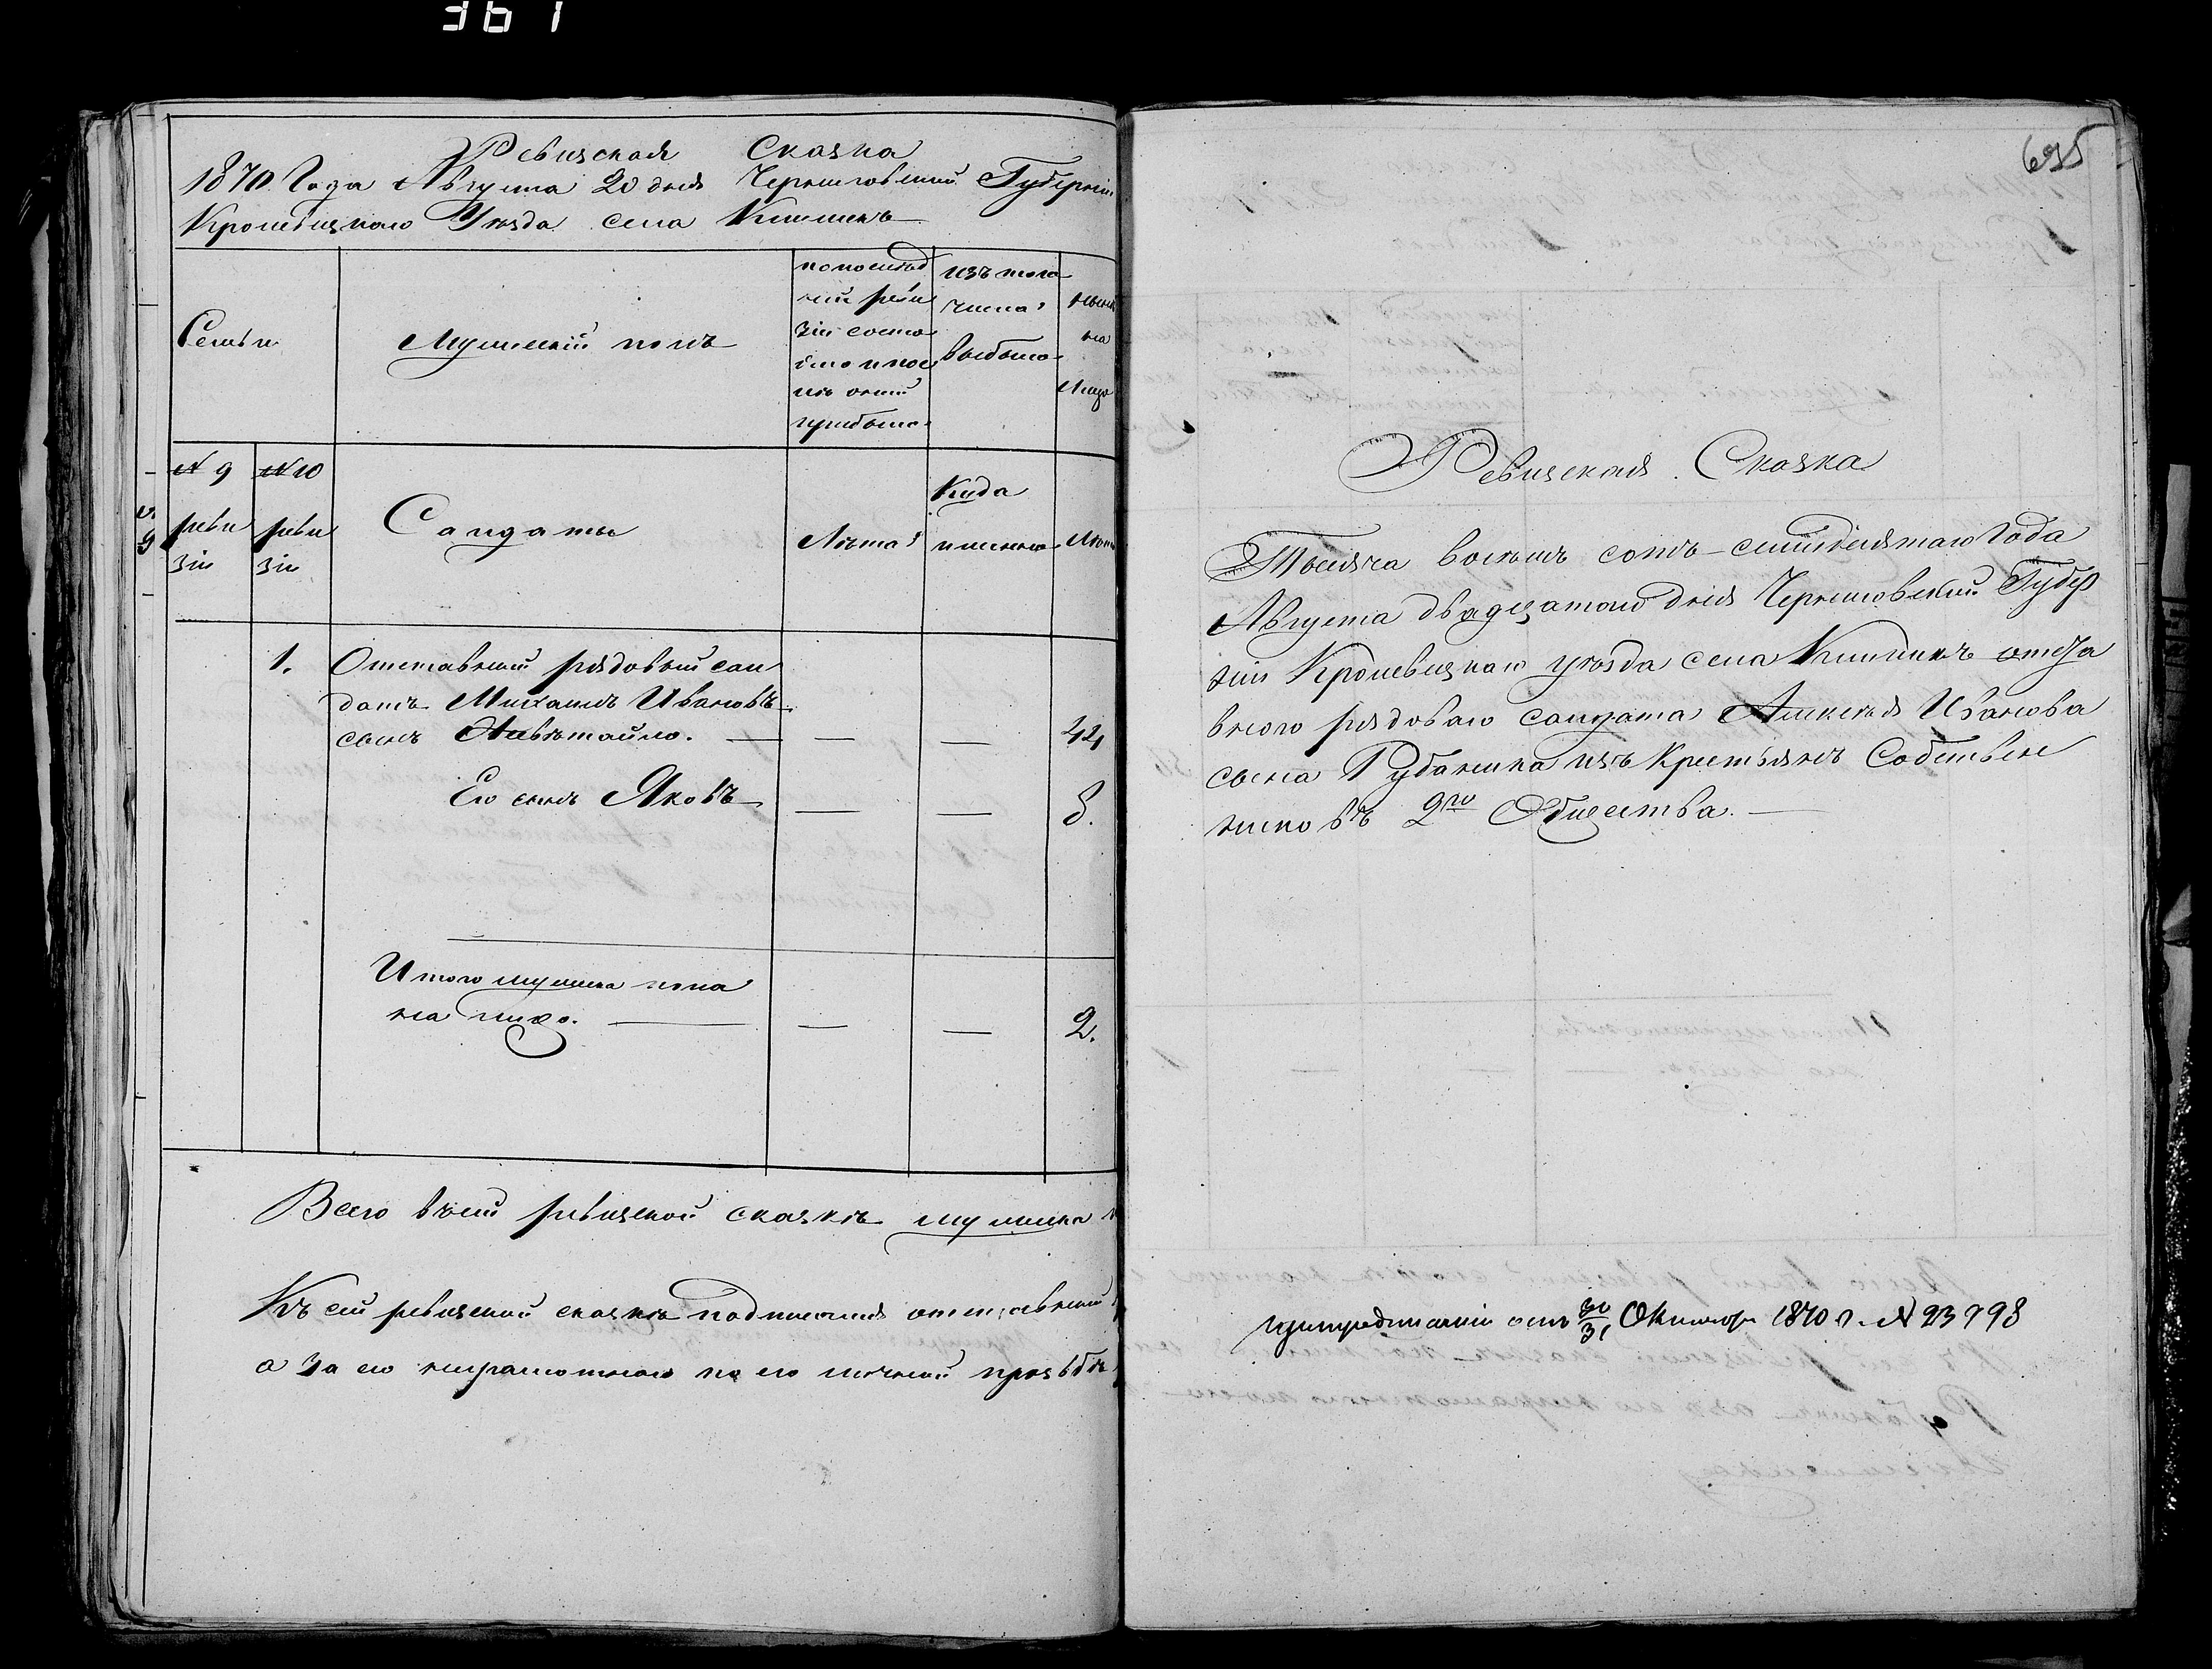 361
Ревизская Сказка
1870 Года Августа 20 дня Черниговской Губерніи
Кролевецкаго Уѣзда села Кишекъ
Семьи
Мужескій полъ
по послѣд
ней реви
зіи состо
яло и пос
лѣ оной
прибыло.
изъ того
числа
выбыло
нынѣ
на
лицо
№ 9
реви
зіи
№ 10
реви
зіи
Солдаты
Лѣта
Куда
именно
Лѣта
1.
Отставный рядовый сол
датъ Михаилъ Ивановъ
сынъ
44
Его сынъ Яковъ
8.
Итого мужеска пола
на лицо.
2.
Всего въ сей ревизской сказкѣ мужеска
Къ сей ревизской сказкѣ подписался отставный
а за его неграмотного по его личной прозьбѣ
695
Ревизская Сказка
Тысяча восемь сотъ семидесятаго Года
Августа двадцатого дня Черниговской Губер
ніи Кролевецкаго уѣзда села Кишекъ отста
вного рядоваго солдата Алексѣя Иванова
сына Рубаника изъ крестьянъ Собствен
никовъ 2го Общества.
при предписаніи отъ 30/31 Октября 1870 г. № 23798